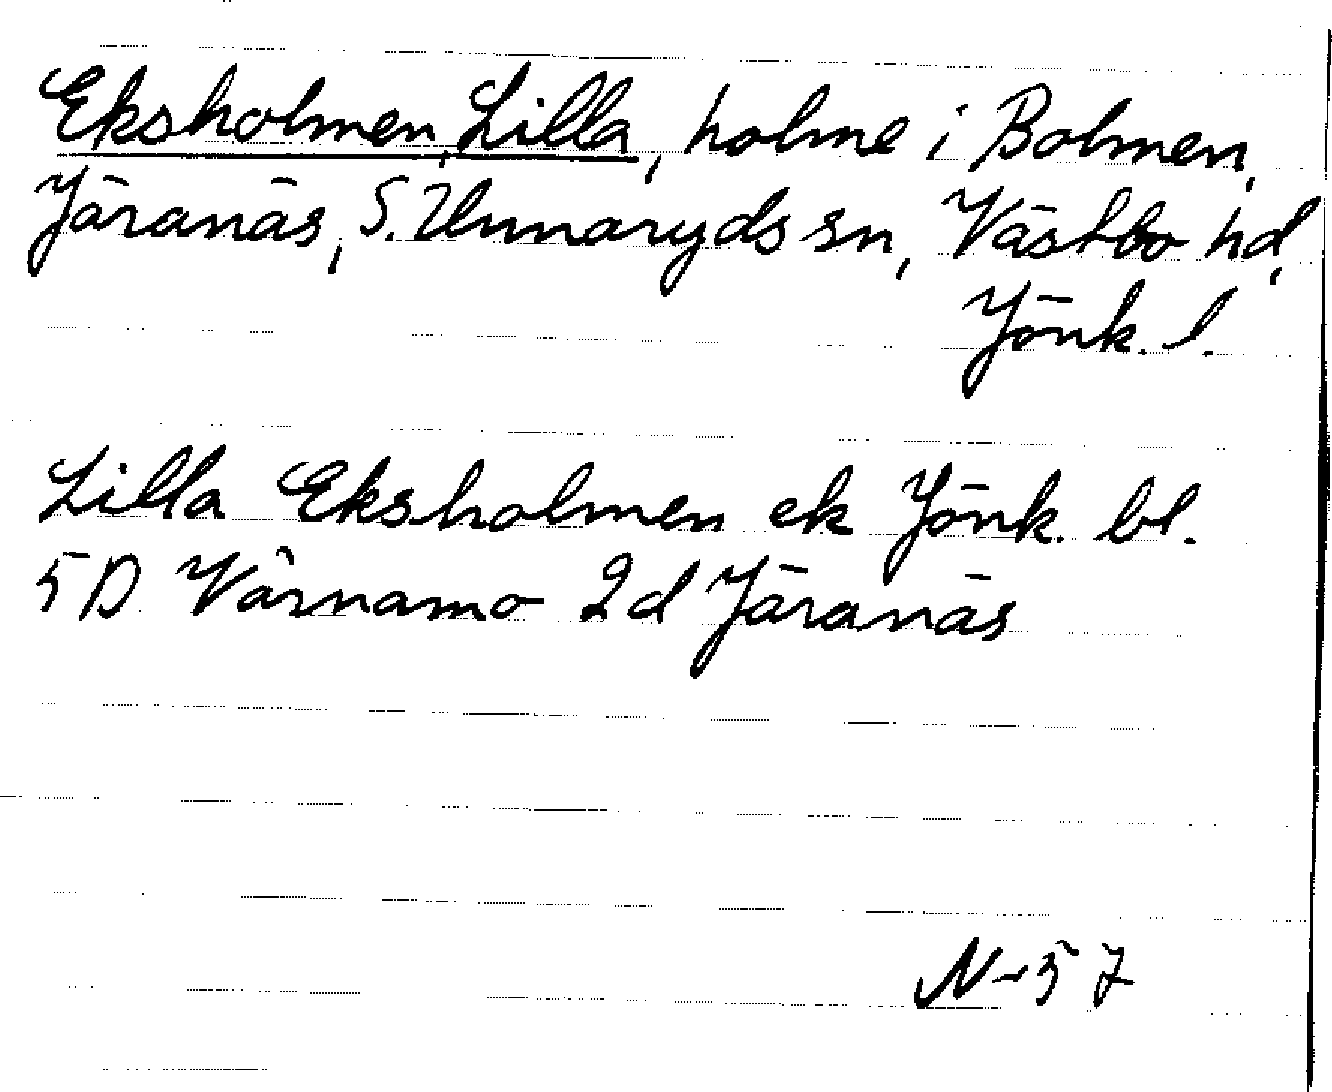 Eksholmen, Lilla, holme i Bolmen,
Järanäs, S. Unnaryds sn, Västbo hd,
Jönk. l.
Lilla Eksholmen ek Jönk. bl.
5D Värnamo 2d Järanäs
N-57